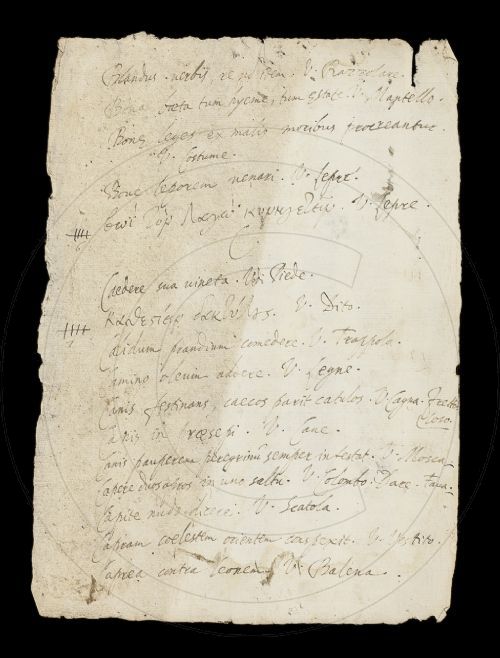 Blandus verbis, re ꝗdem. V. Razzolare.
Bona tum hyeme, tum estate. V. Mantello.
Bonę leges ex malis moribus procreantur.
V. Costume.
Bove leporem venari. V. Lepre.
V. Lepre.
C.
Cædere sua vineta. V. Piede.
V. Dito.
Calidum prandium comedere. V. Trappola.
Camino oleum addere. V. Legne.
Canis festinans, caecos parit catulos. V. Cagna. Frettoloso.
Canis in præsepi. V. Cane.
Canis pauperem peregrinũ semper infestat. V. Mosca.
Capere duos apros in uno saltu. V. Colombo. Dare. Fava.
Capite nudo dicere. V. Scatola.
Capram coelestem orientem conspexit. V. Vestito.
Caprea contra Leonem. V. Balena.